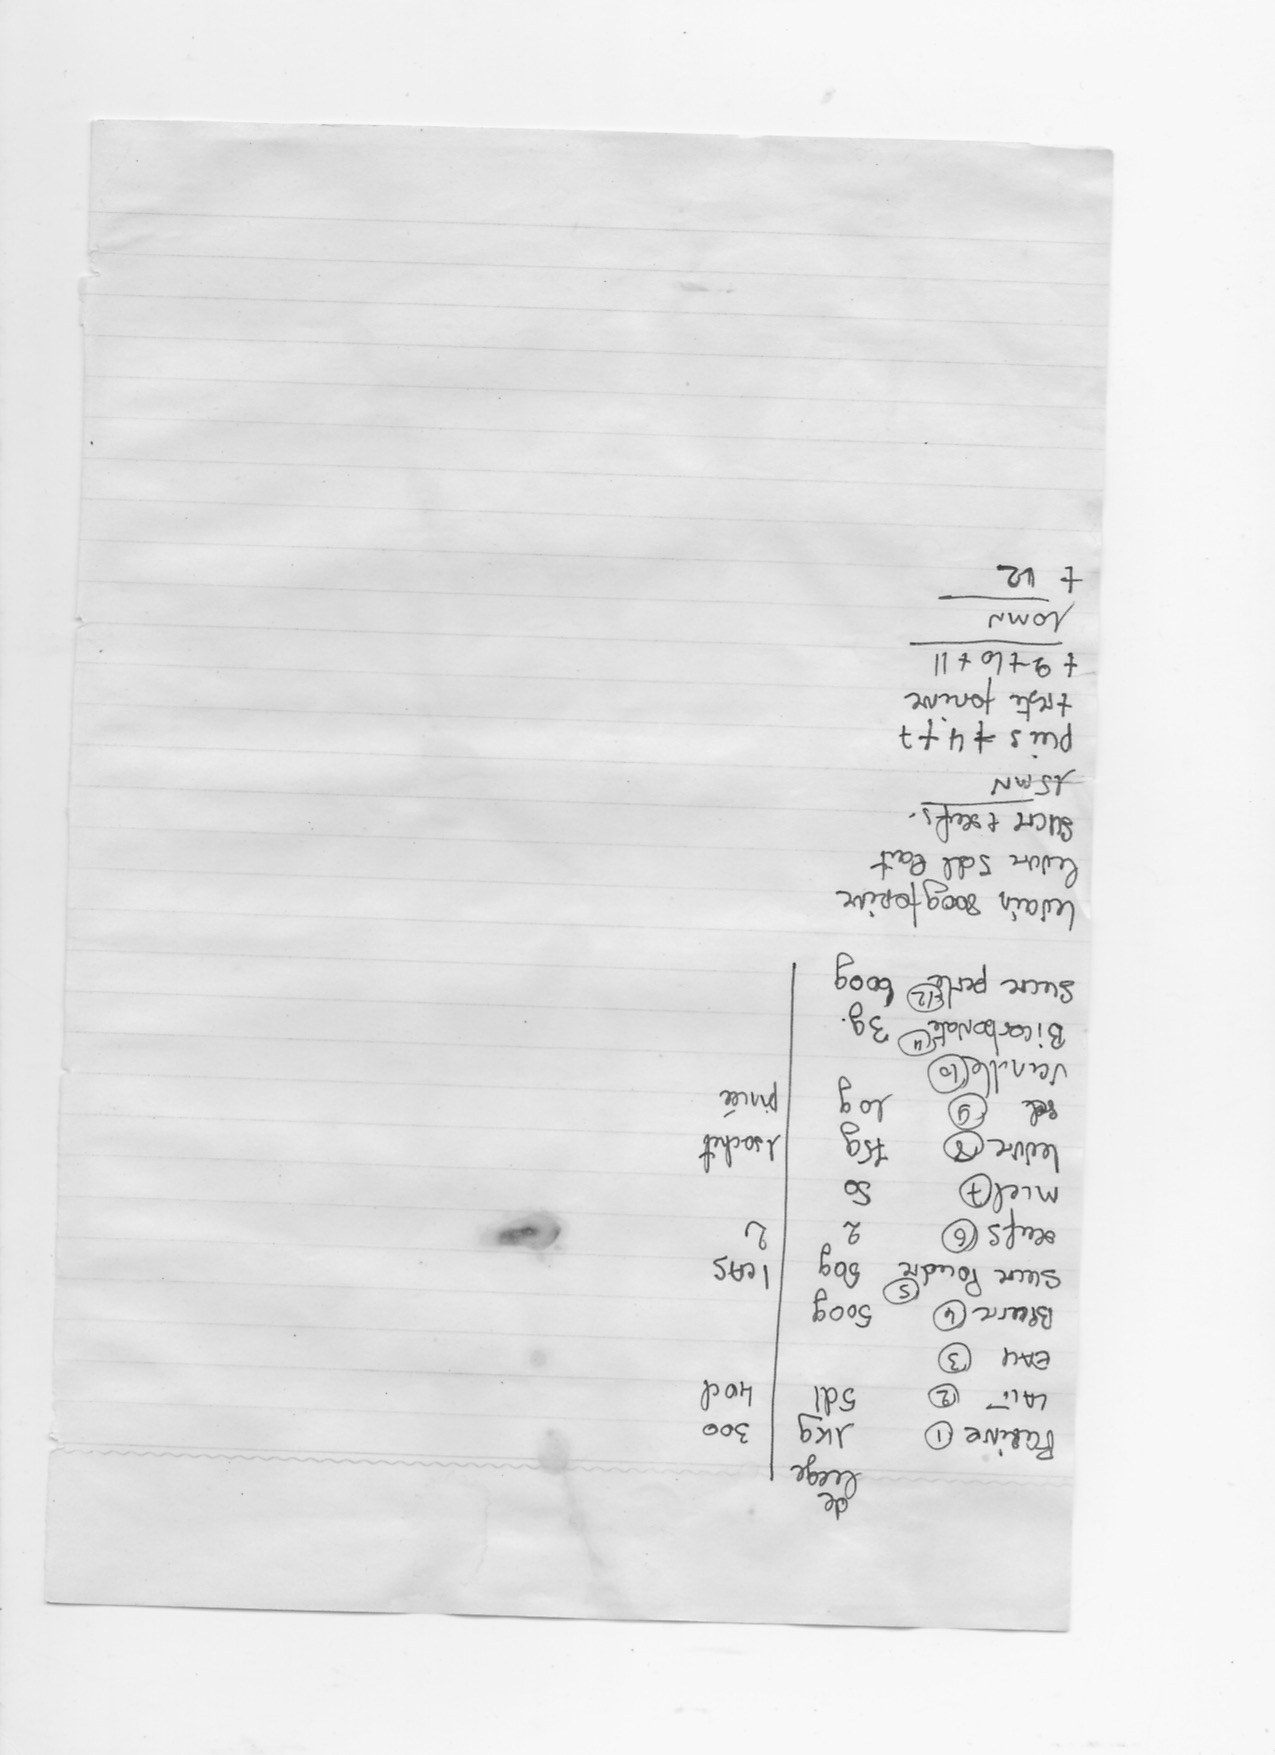 de
liege
Farine ① 1kg 300
LAIT ② 5dl 40cl
EAU ③
Beurre ④ 500g
Sucre Poudre ⑤ 50g 1 CAS
œufs ⑥ 2 2
miel ⑦ 50
levure ⑧ 75g 1 sachet
sel ⑨ 10g pincée
Vanille ⑩
Bicarbonate ⑪ 3g.
Sucre perlé ⑫ 600g
levain 800g farine
levure 5dl lait
sucre + œufs.
15MN
puis + 4 + 7
+ reste farine
+ 9 + 10 + 11
10MN
+ 12